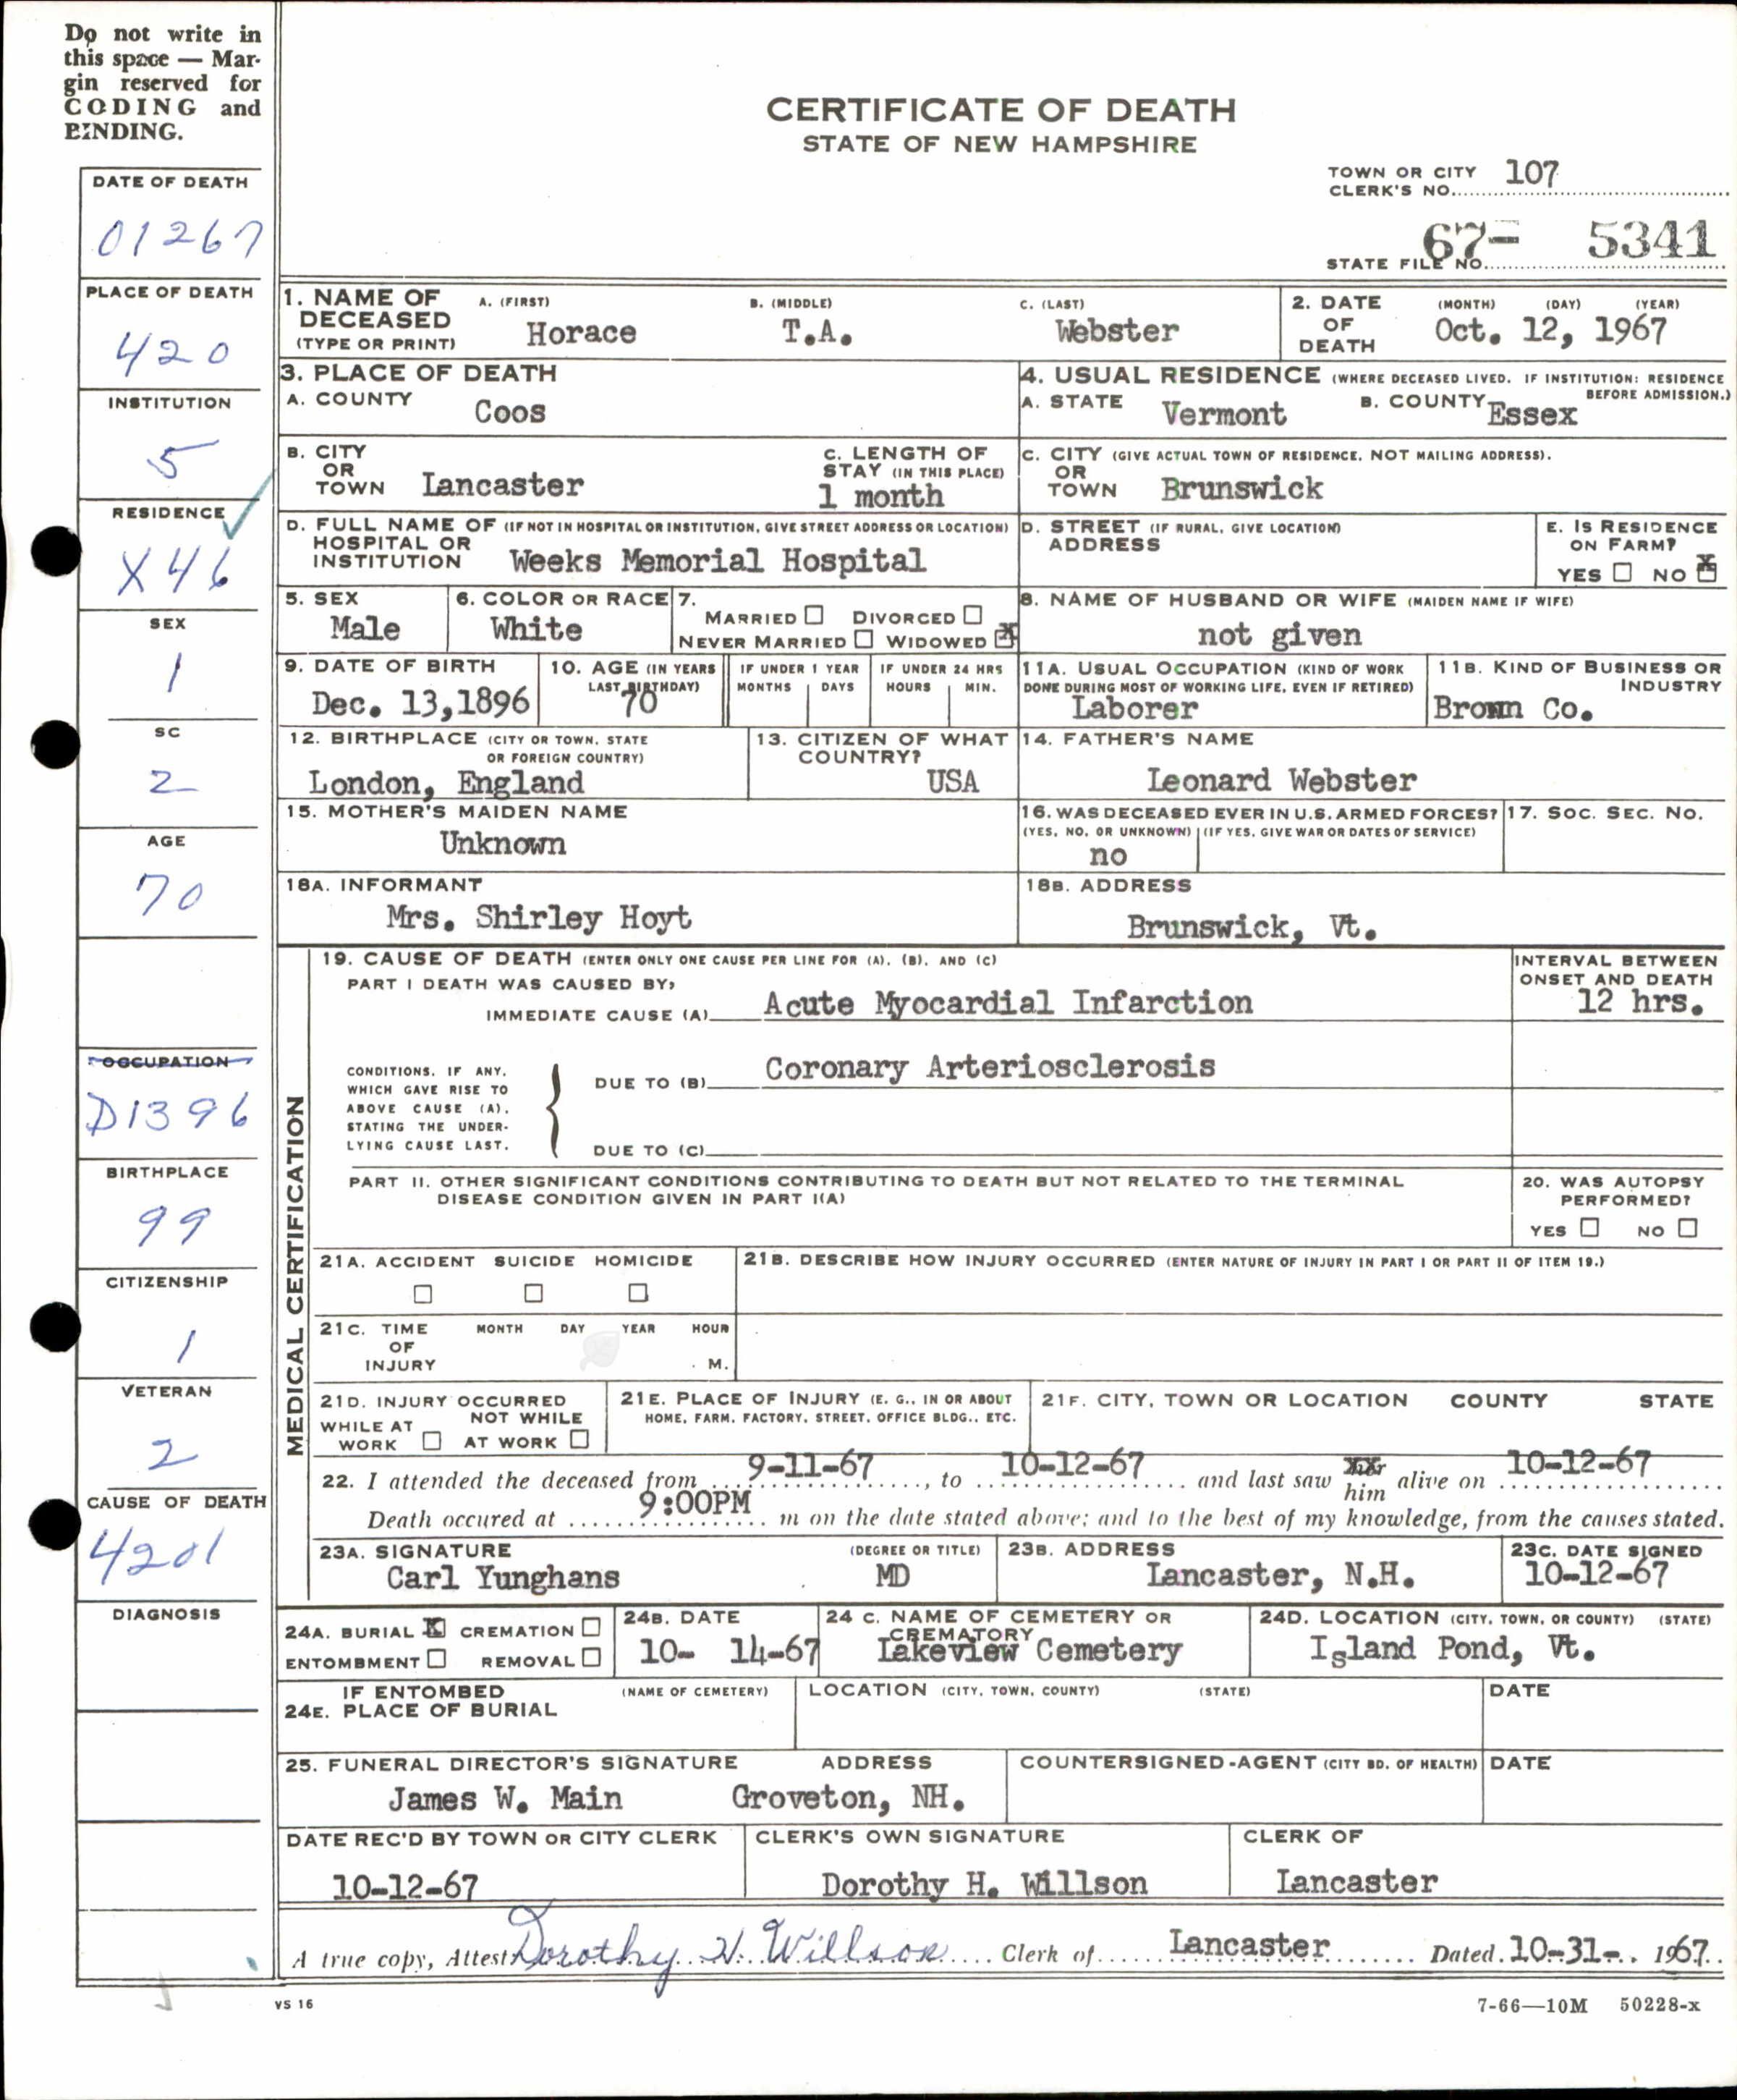 Do not write in
this space — Mar-
gin reserved for
CODING and
BINDING.
CERTIFICATE OF DEATH
STATE OF NEW HAMPSHIRE
TOWN OR CITY
CLERK'S NO. 107
STATE FILE NO. 67- 5341
DATE OF DEATH
01267
PLACE OF DEATH
420
INSTITUTION
5
RESIDENCE
X46
SEX
1
SC
2
AGE
70
OCCUPATION
D1396
BIRTHPLACE
99
CITIZENSHIP
1
VETERAN
2
CAUSE OF DEATH
4201
DIAGNOSIS
1. NAME OF DECEASED (TYPE OR PRINT) A. (FIRST) B. (MIDDLE) C. (LAST)
Horace T.A. Webster
2. DATE OF DEATH (MONTH) (DAY) (YEAR)
Oct. 12, 1967
3. PLACE OF DEATH
A. COUNTY Coos
4. USUAL RESIDENCE (WHERE DECEASED LIVED. IF INSTITUTION: RESIDENCE BEFORE ADMISSION.)
A. STATE Vermont B. COUNTY Essex
B. CITY OR TOWN Lancaster
C. LENGTH OF STAY (IN THIS PLACE)
1 month
C. CITY (GIVE ACTUAL TOWN OF RESIDENCE, NOT MAILING ADDRESS).
OR TOWN Brunswick
D. FULL NAME OF (IF NOT IN HOSPITAL OR INSTITUTION, GIVE STREET ADDRESS OR LOCATION)
HOSPITAL OR INSTITUTION Weeks Memorial Hospital
D. STREET (IF RURAL, GIVE LOCATION)
ADDRESS
E. IS RESIDENCE ON FARM?
YES NO X
5. SEX
Male
6. COLOR OR RACE
White
7. MARRIED DIVORCED
NEVER MARRIED WIDOWED X
8. NAME OF HUSBAND OR WIFE (MAIDEN NAME IF WIFE)
not given
9. DATE OF BIRTH
Dec. 13,1896
10. AGE (IN YEARS LAST BIRTHDAY)
70
IF UNDER 1 YEAR
MONTHS DAYS
IF UNDER 24 HRS
HOURS MIN.
11A. USUAL OCCUPATION (KIND OF WORK DONE DURING MOST OF WORKING LIFE, EVEN IF RETIRED)
Laborer
11B. KIND OF BUSINESS OR INDUSTRY
Brown Co.
12. BIRTHPLACE (CITY OR TOWN, STATE OR FOREIGN COUNTRY)
London, England
13. CITIZEN OF WHAT COUNTRY?
USA
14. FATHER'S NAME
Leonard Webster
15. MOTHER'S MAIDEN NAME
Unknown
16. WAS DECEASED EVER IN U.S. ARMED FORCES?
(YES, NO, OR UNKNOWN) (IF YES, GIVE WAR OR DATES OF SERVICE)
no
17. SOC. SEC. NO.
18A. INFORMANT
Mrs. Shirley Hoyt
18B. ADDRESS
Brunswick, Vt.
MEDICAL CERTIFICATION
19. CAUSE OF DEATH (ENTER ONLY ONE CAUSE PER LINE FOR (A), (B), AND (C)
INTERVAL BETWEEN ONSET AND DEATH
PART I DEATH WAS CAUSED BY:
IMMEDIATE CAUSE (A) Acute Myocardial Infarction 12 hrs.
CONDITIONS, IF ANY,
WHICH GAVE RISE TO
ABOVE CAUSE (A),
STATING THE UNDER-
LYING CAUSE LAST.
DUE TO (B) Coronary Arteriosclerosis
DUE TO (C)
PART II. OTHER SIGNIFICANT CONDITIONS CONTRIBUTING TO DEATH BUT NOT RELATED TO THE TERMINAL
DISEASE CONDITION GIVEN IN PART I(A)
20. WAS AUTOPSY PERFORMED?
YES NO
21A. ACCIDENT SUICIDE HOMICIDE
21B. DESCRIBE HOW INJURY OCCURRED (ENTER NATURE OF INJURY IN PART I OR PART II OF ITEM 19.)
21C. TIME OF INJURY MONTH DAY YEAR HOUR
M.
21D. INJURY OCCURRED
WHILE AT WORK NOT WHILE AT WORK
21E. PLACE OF INJURY (E. G., IN OR ABOUT HOME, FARM, FACTORY, STREET, OFFICE BLDG., ETC.
21F. CITY, TOWN OR LOCATION COUNTY STATE
22. I attended the deceased from 9-11-67, to 10-12-67 and last saw him alive on 10-12-67
Death occured at 9:00PM m on the date stated above; and to the best of my knowledge, from the causes stated.
23A. SIGNATURE (DEGREE OR TITLE)
Carl Yunghans MD
23B. ADDRESS
Lancaster, N.H.
23C. DATE SIGNED
10-12-67
24A. BURIAL X CREMATION
ENTOMBMENT REMOVAL
24B. DATE
10- 14-67
24 C. NAME OF CEMETERY OR CREMATORY
Lakeview Cemetery
24D. LOCATION (CITY, TOWN, OR COUNTY) (STATE)
Island Pond, Vt.
IF ENTOMBED (NAME OF CEMETERY)
24E. PLACE OF BURIAL
LOCATION (CITY, TOWN, COUNTY) (STATE)
DATE
25. FUNERAL DIRECTOR'S SIGNATURE ADDRESS
James W. Main Groveton, NH.
COUNTERSIGNED-AGENT (CITY BD. OF HEALTH)
DATE
DATE REC'D BY TOWN OR CITY CLERK
10-12-67
CLERK'S OWN SIGNATURE
Dorothy H. Willson
CLERK OF
Lancaster
A true copy, Attest Dorothy H. Willson Clerk of Lancaster Dated 10-31- 1967
VS 16
7-66—10M 50228-x